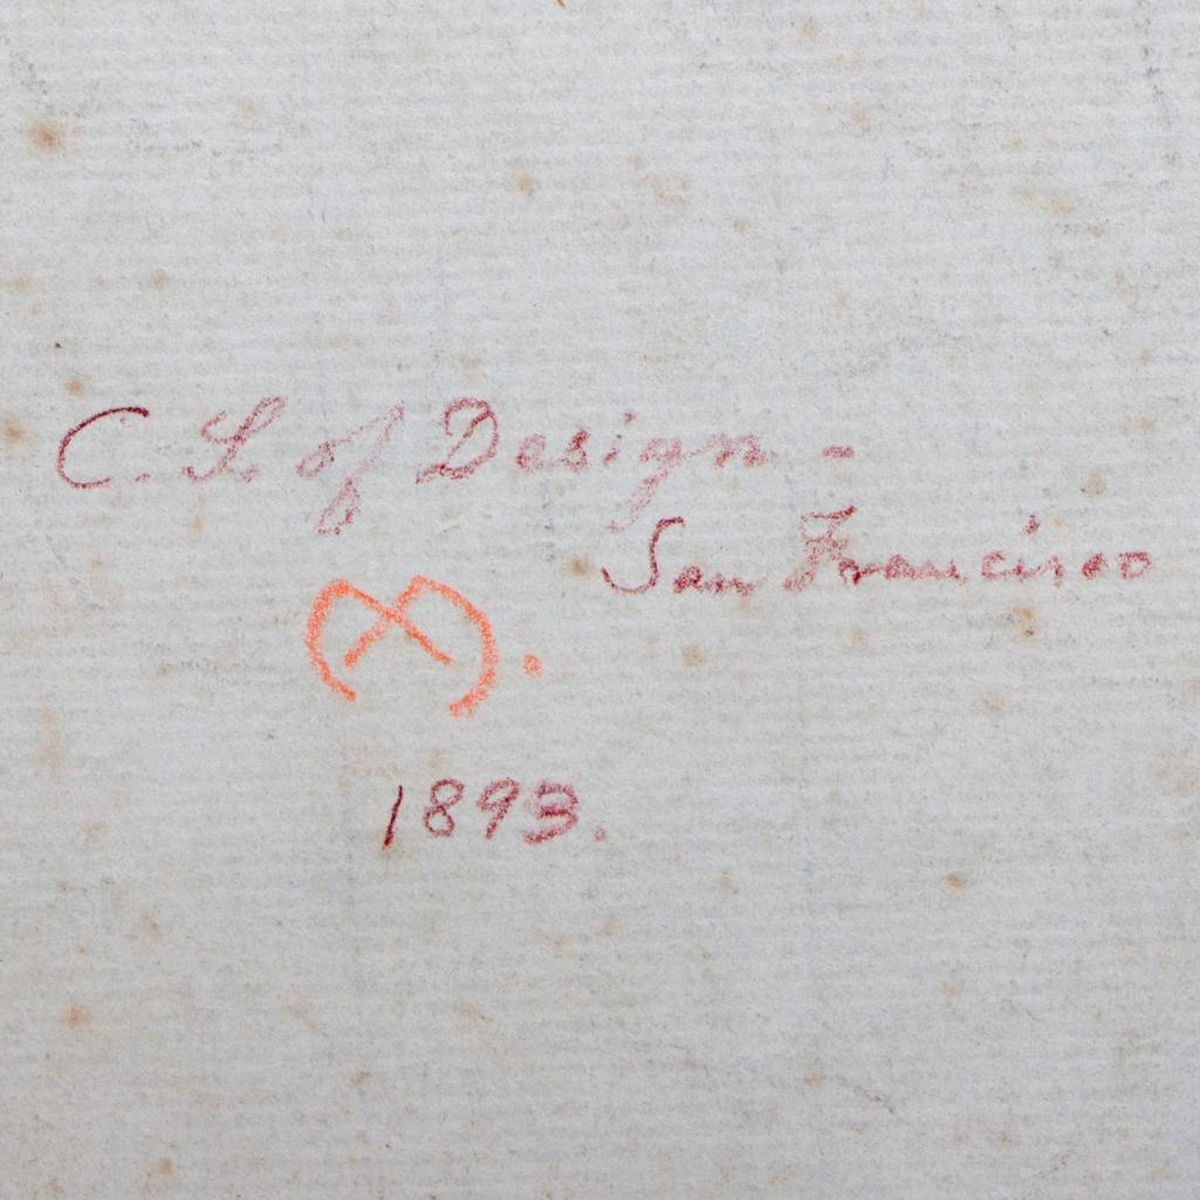 C. S. of Design -
San Francisco
1893.